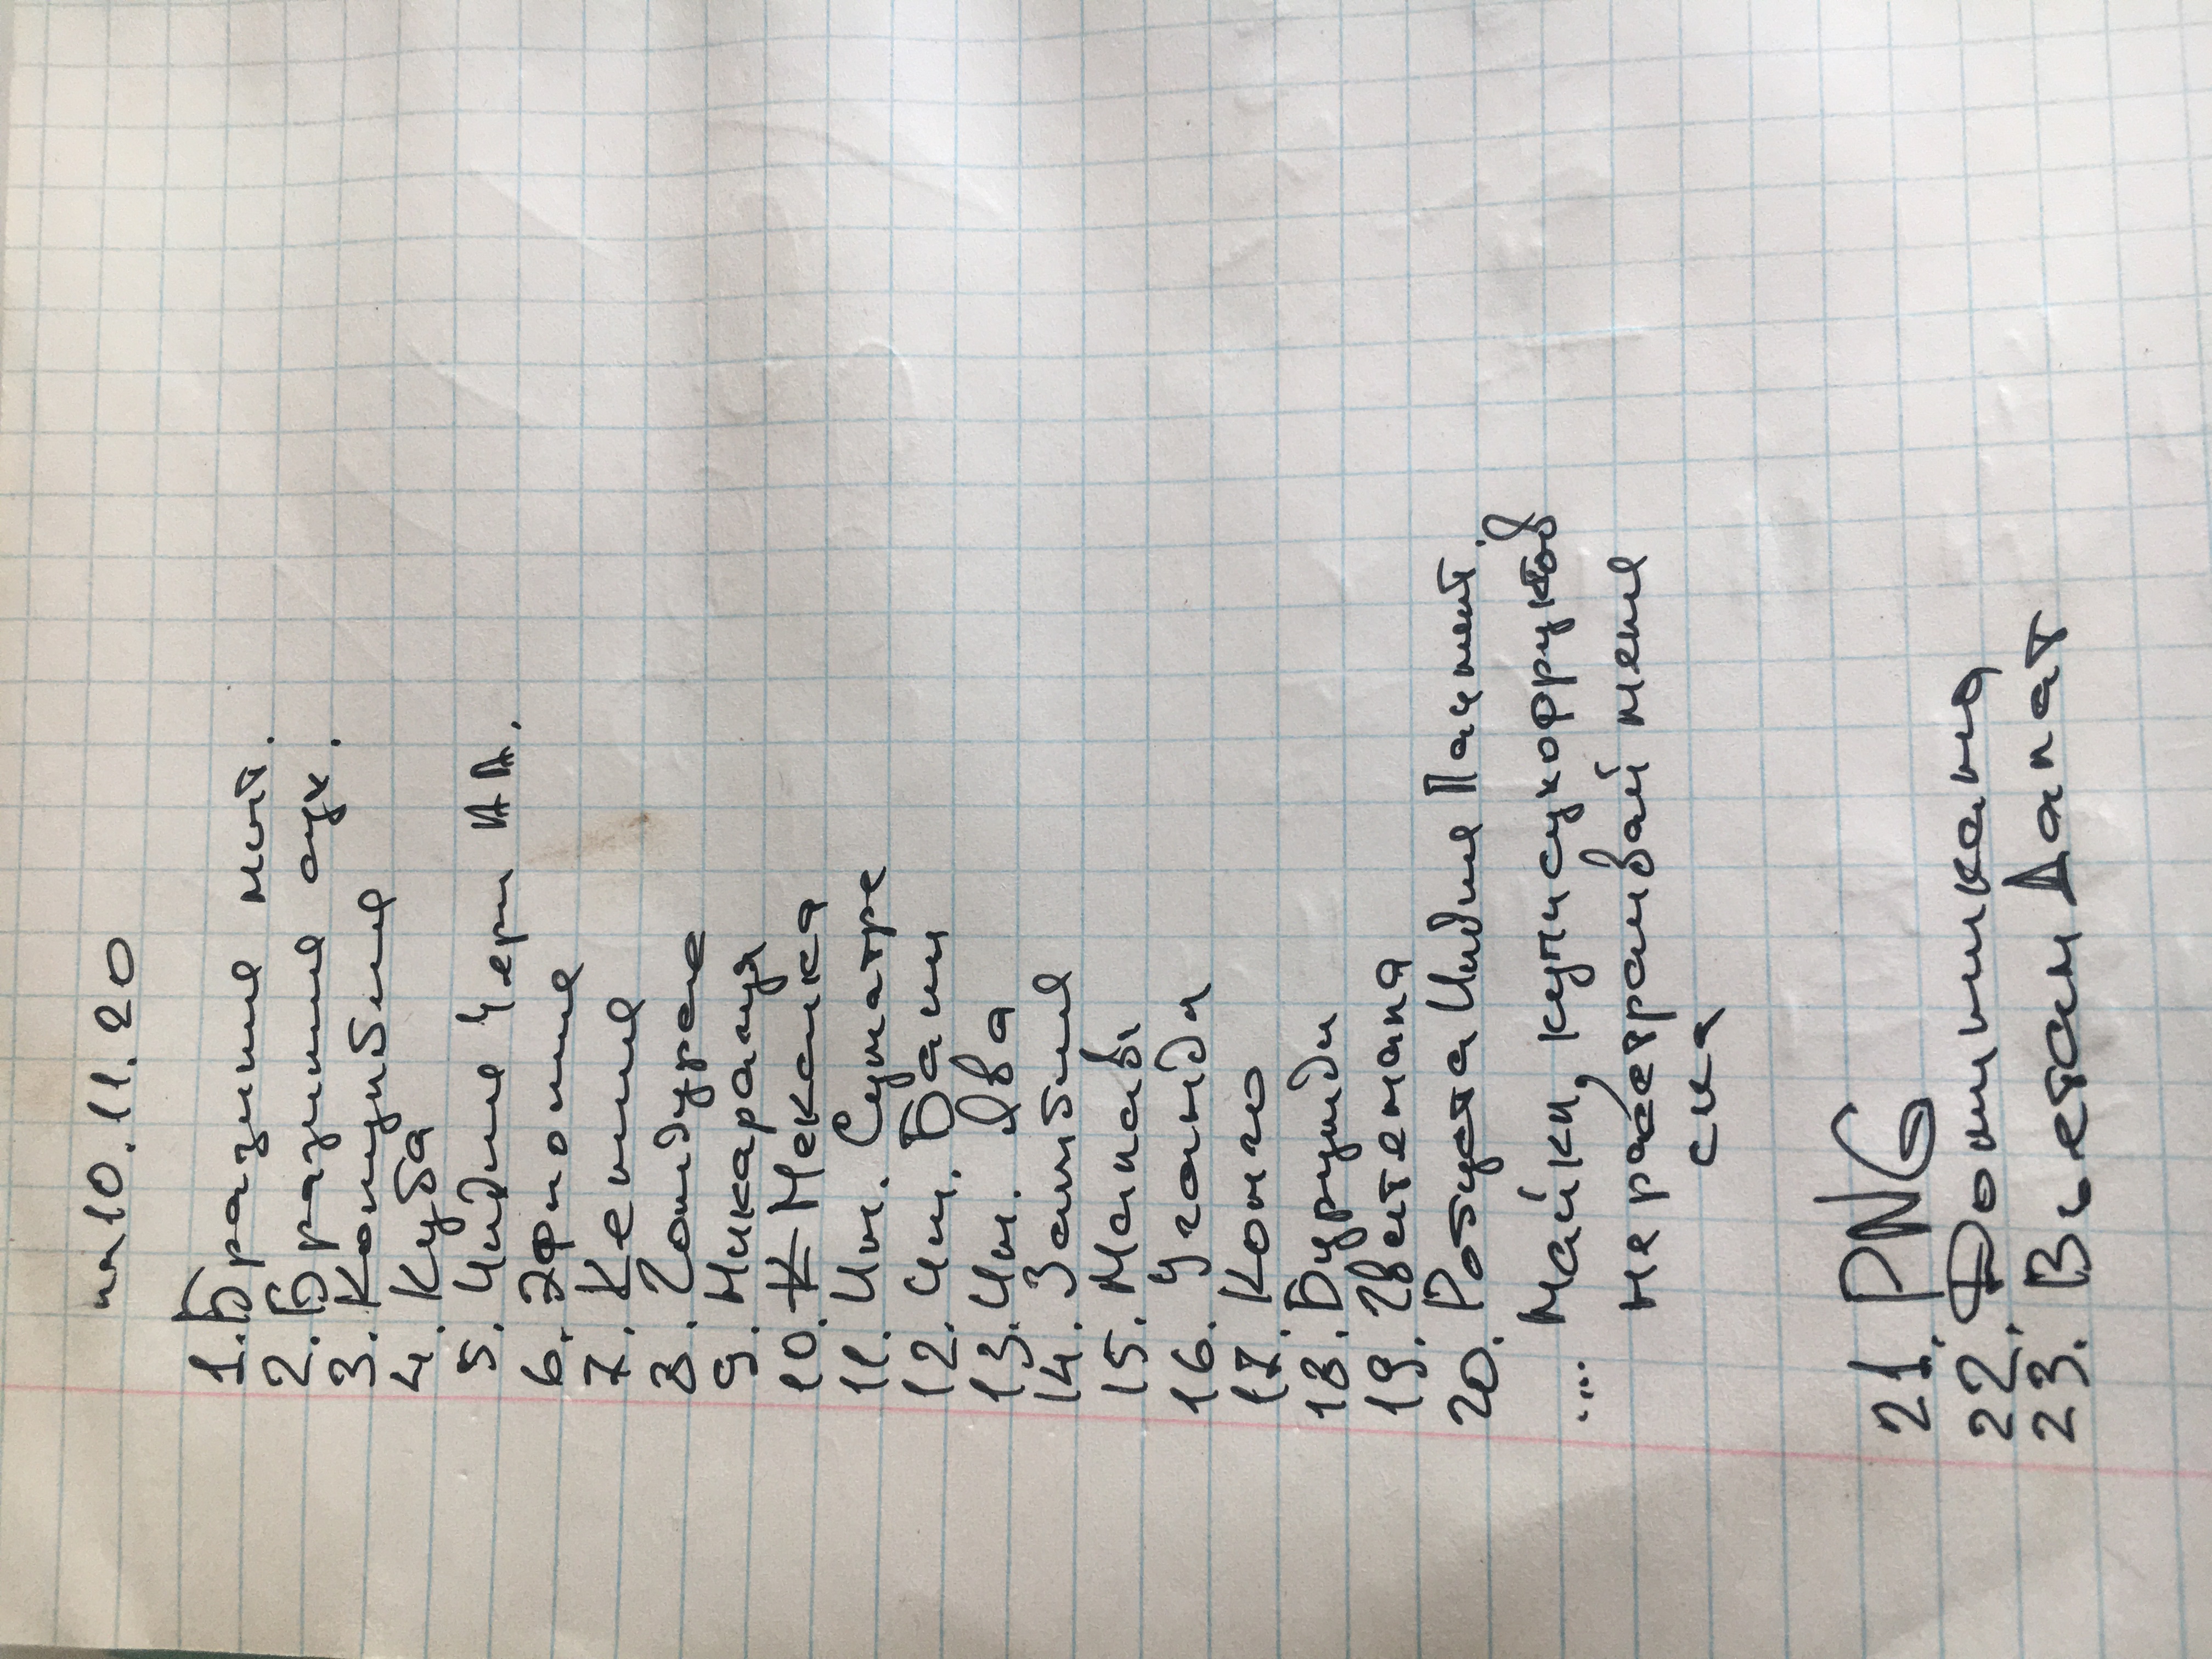 на 10.11.20
1. Бразилия мыт.
2. Бразилия сух.
3. Колумбия
4. Куба
5. Индия Черри АА.
6. Эфиопия
7. Кения
8. Гондурас
9. Никарагуа
10. Мексика
11. Ин. Суматра
12. Ин. Бали
13. Ин. Ява
14. Замбия
15. Малави
16. Уганда
17. Конго
18. Бурунди
19. Гватемала
20. Робуста Индия Пачмент.
... Майкл,
не расстраивай меня
21. PNG
22. Доминикана
23. Вьетнам Далат